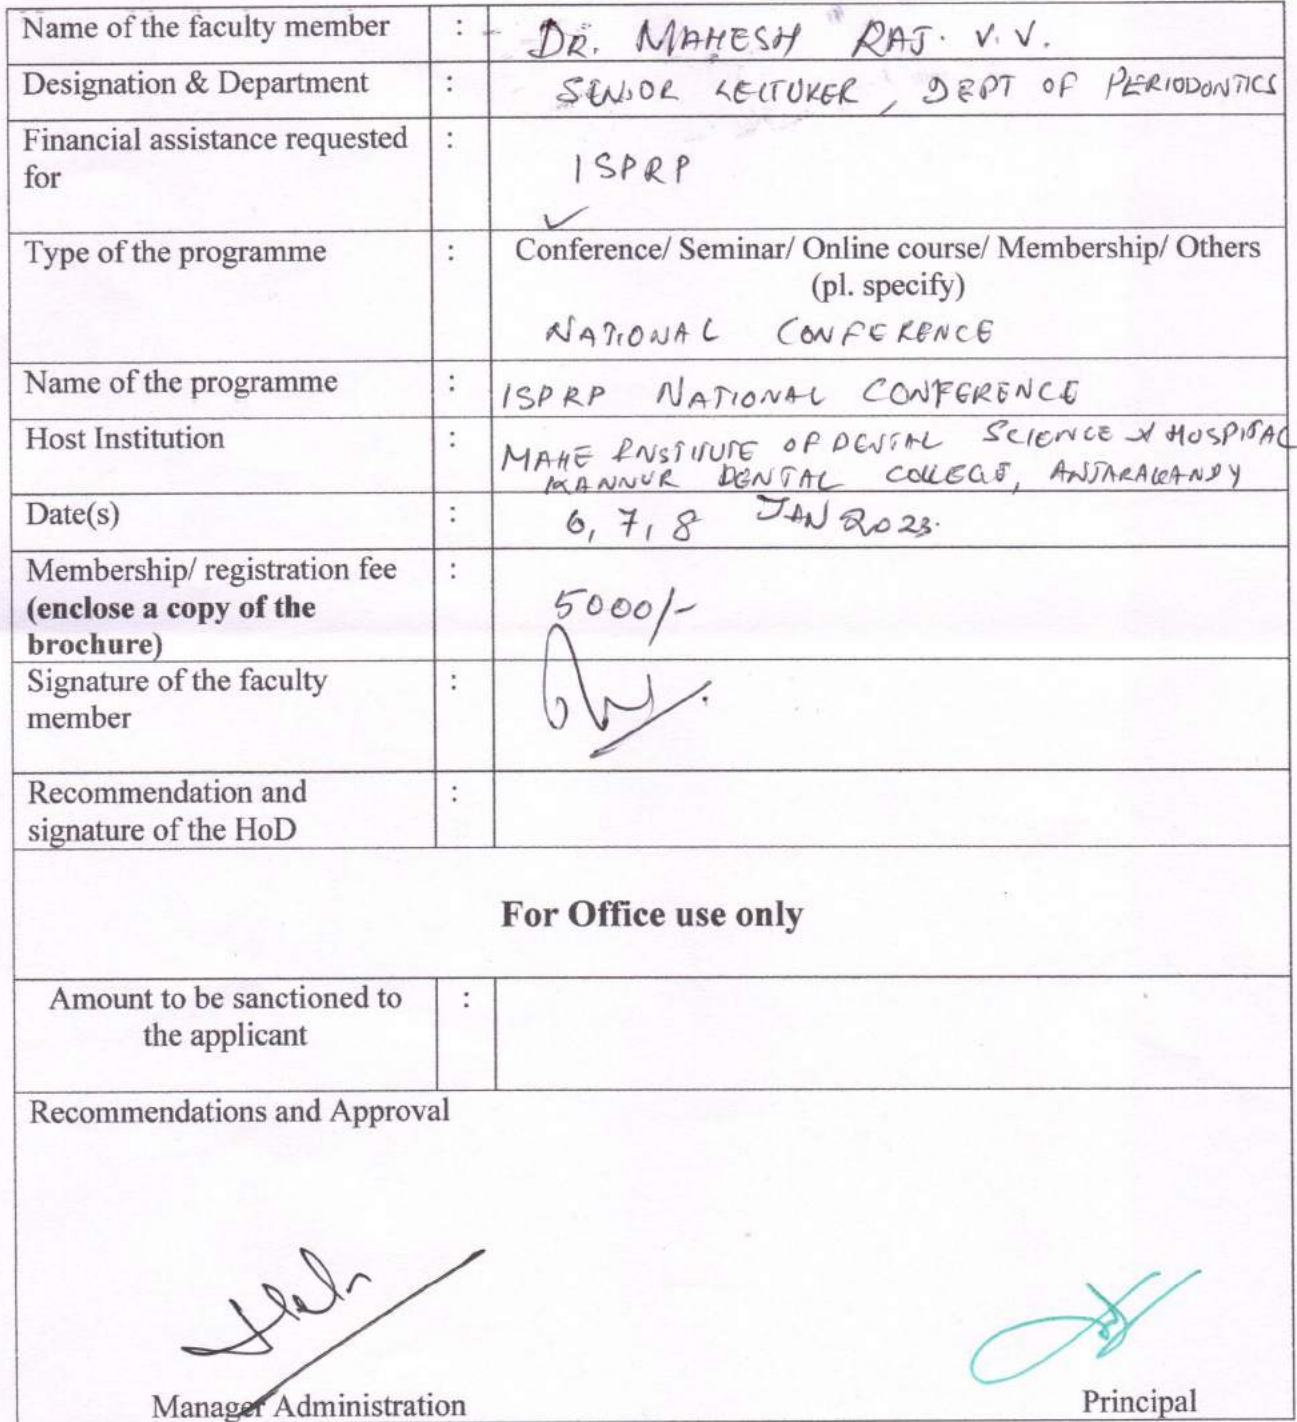 Name of the faculty member : - DR. MAHESH RAJ. V. V.
Designation & Department : SENIOR LECTURER, DEPT OF PERIODONTICS
Financial assistance requested :
for
ISPRP
✓
Type of the programme : Conference/ Seminar/ Online course/ Membership/ Others
(pl. specify)
NATIONAL CONFERENCE
Name of the programme : ISPRP NATIONAL CONFERENCE
Host Institution : MAHE INSTITUTE OF DENTAL SCIENCE & HOSPITAL
KANNUR DENTAL COLLEGE, ANJARAKANDY
Date(s) : 6, 7, 8 JAN 2023.
Membership/ registration fee :
(enclose a copy of the 5000/-
brochure)
Signature of the faculty :
member
Recommendation and :
signature of the HoD
For Office use only
Amount to be sanctioned to :
the applicant
Recommendations and Approval
Manager Administration Principal